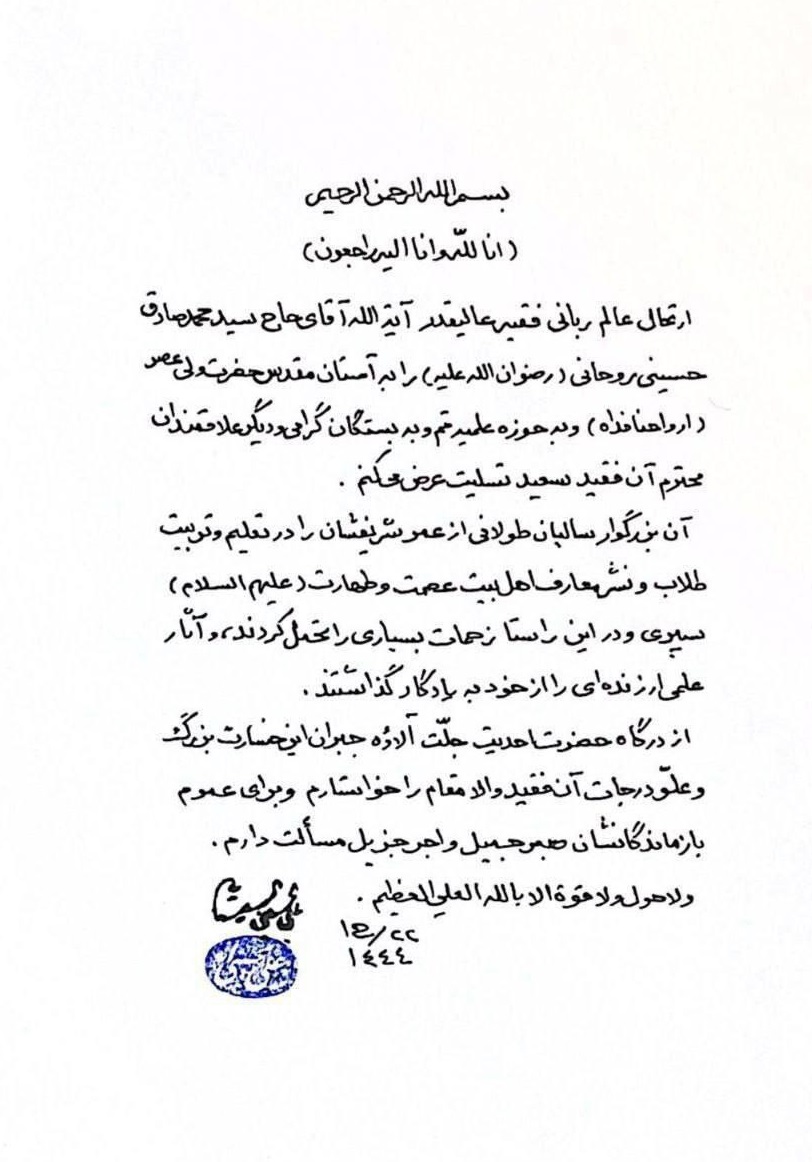 بسم الله الرحمن الرحیم
(انا للّه وانا الیه راجعون)
ارتحال عالم ربانی فقیه عالیقدر آیة الله آقای حاج سید محمد صادق
حسینی روحانی (رضوان الله علیه) را به آستان مقدس حضرت ولی عصر
(ارواحنا فداه) و به حوزه علمیه قم و به بستگان گرامی و دیگر علاقمندان
محترم آن فقید سعید تسلیت عرض میکنم .
آن بزرگوار سالیان طولانی از عمر شریفشان را در تعلیم و تربیت
طلاب و نشر معارف اهل بیت عصمت و طهارت (علیهم السلام)
سپری و در این راستا زحمات بسیاری را تحمل کردند، و آثار
علمی ارزنده ای را از خود به یادگار گذاشتند .
از درگاه حضرت احدیت جلّت آلاؤه جبران این خسارت بزرگ
و علوّ درجات آن فقید والا مقام را خواستارم و برای عموم
بازماندگانشان صبر جمیل و اجر جزیل مسألت دارم .
ولا حول ولا قوة الا بالله العلی العظیم .
علی الحسینی السیستانی
٢٢/ع١
١٤٤٤